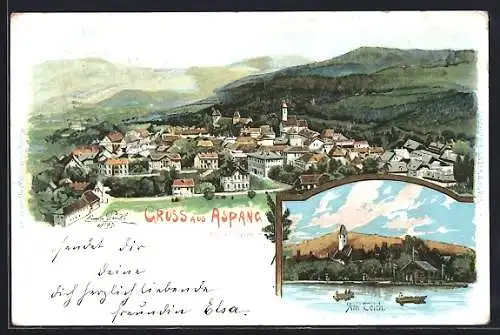 GRUSS AUS ASPANG
Am Teich
sendet dir
Deine
dich herzlich liebende
freundin Elsa.